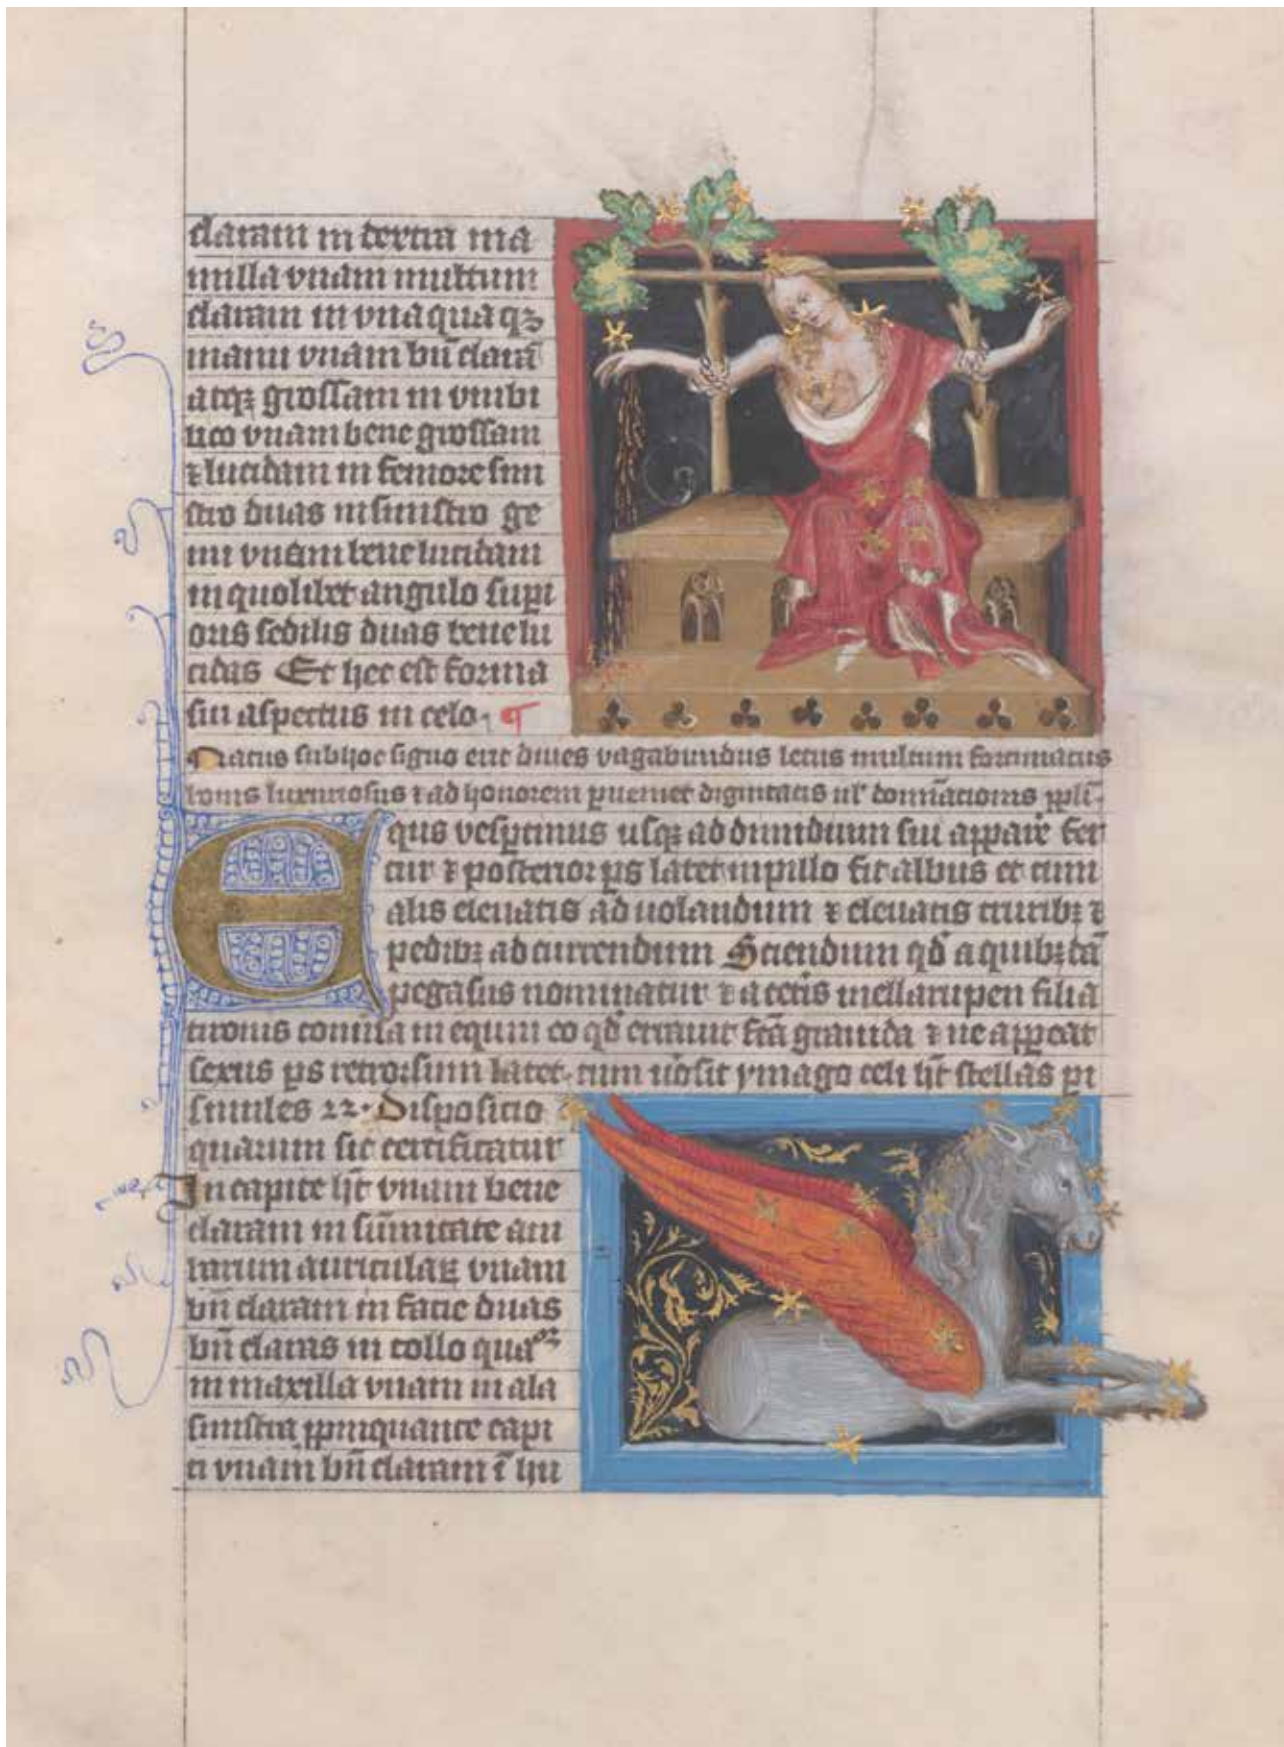 claram in dextra ma
milla vnam multum
claram in vna qua qz
manu vnam bn̄ clarā
atqz grossam in vmbi
lico vnam bene grossam
⁊ lucidam in femore sini
stro duas in sinistro ge
nu vnam bene lucidam
in quolibet angulo supi
oris sedilis duas bene lu
cidas Et hec est forma
sui aspectus in celo ¶
Natus sub hoc signo erit diues vagabundus letus multum fortunatus
bonis luxuriosus ⁊ ad honorem pueniet dignitatis ul' dominationis
Equs vesptinus usqz ad dimidium sui appare fer
tur ⁊ posterior ps latet in pillo sit albus et cum
alis eleuatis ad uolandum ⁊ eleuatis cruribz ⁊
pedibz ad currendum Sciendum qd̄ a quibzdā
pegasus nominatur ⁊ a cetis mellarupen filia
tironis conuersa in equm eo qd̄ errauit fcā grauida ⁊ ne appeat
sexus ps retrorsum latet cum uo sit ymago celi ht̄ stellas
similes 22 Disposicio
quarum sic certificatur
In capite ht̄ vnam bene
claram in sūmitate am
barum auricularꝝ vnam
bn̄ claram in facie duas
bn̄ claras in collo quaor
in maxilla vnam in ala
sinistra ppinquante capi
ti vnam bn̄ claram ī hu